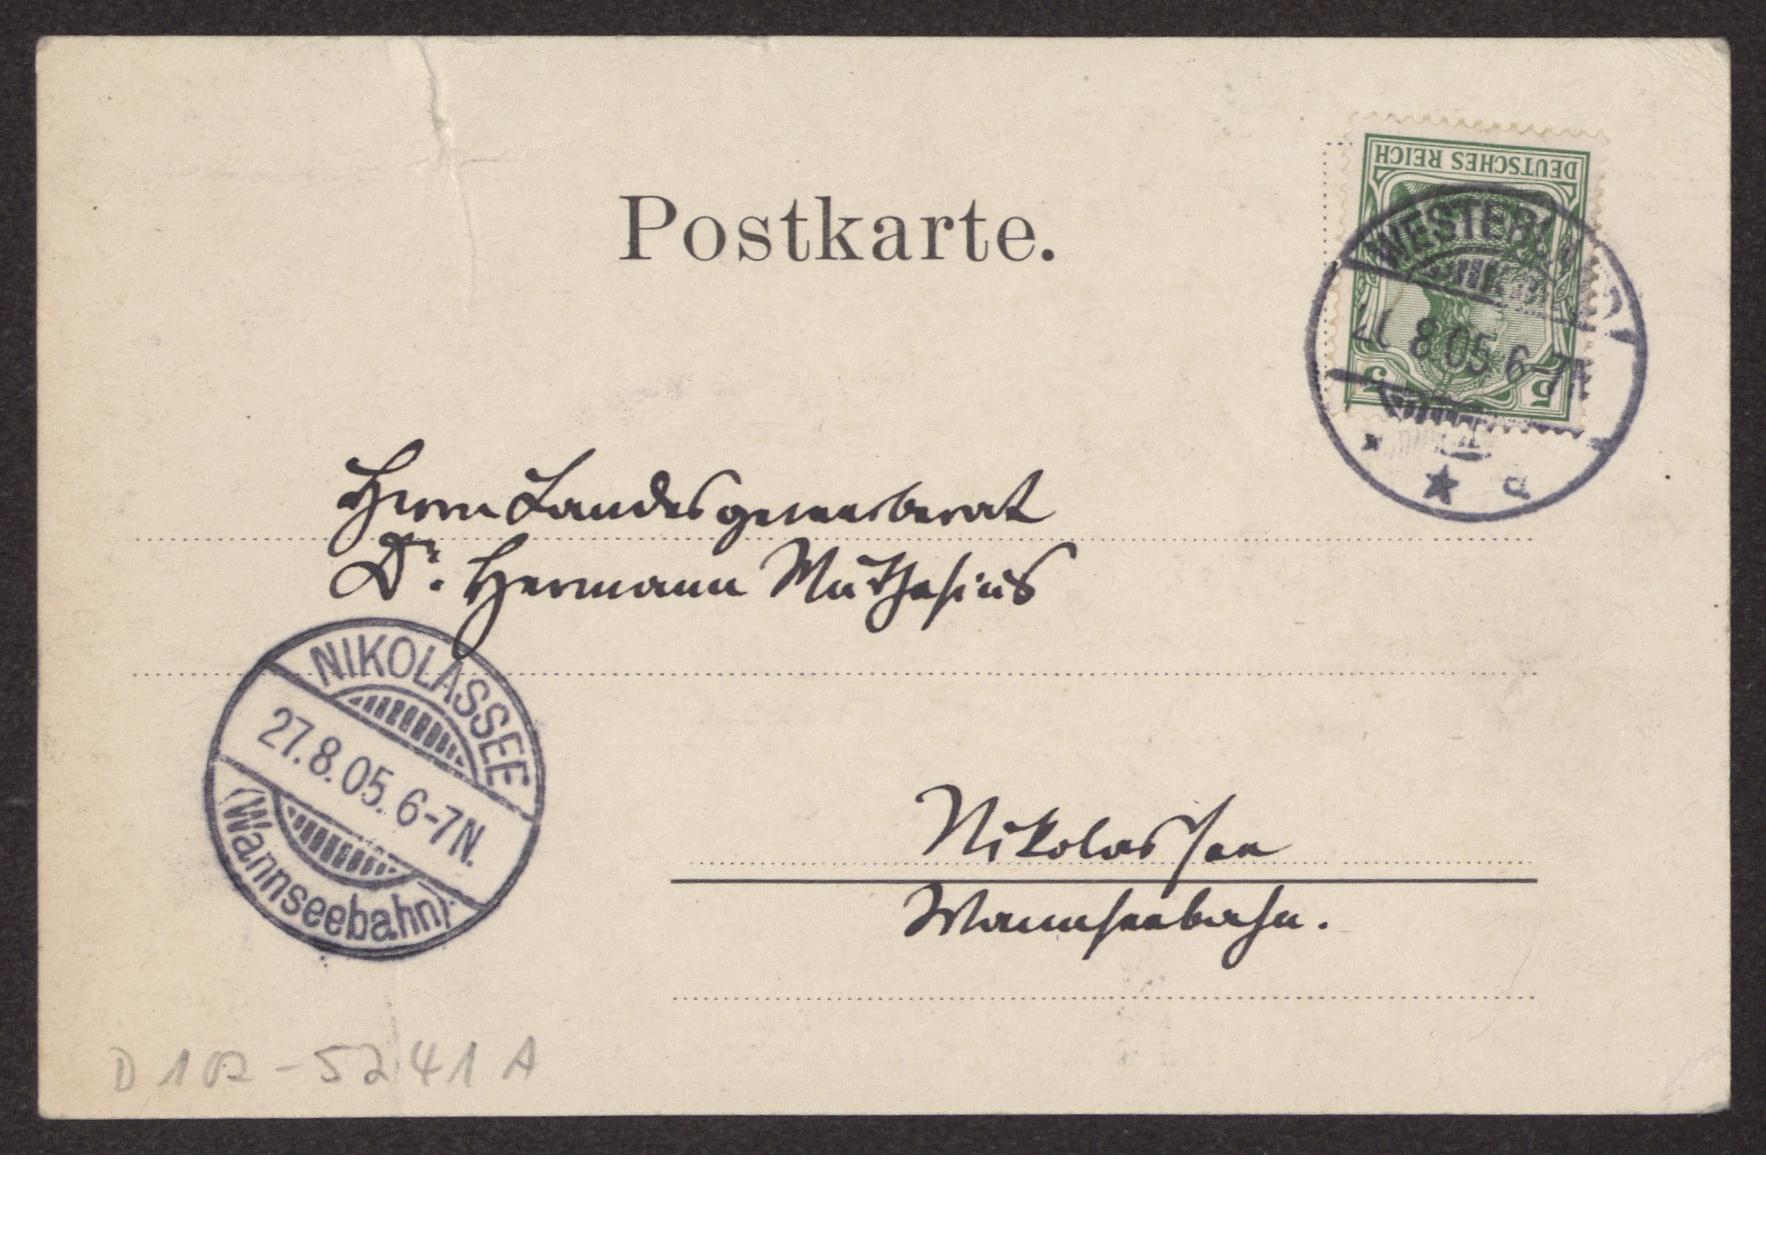 Postkarte.
DEUTSCHES REICH
5 5
WESTERLAND
8.05 6-7N
a
Herrn Landesgewerberat
Dr. Hermann Muthesius
NIKOLASSEE
27.8.05. 6-7N.
(Wannseebahn)
Nikolassee
Wannseebahn.
D 102-5241 A